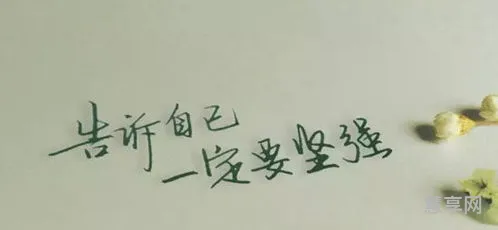 告诉自己
一定要坚强
享网